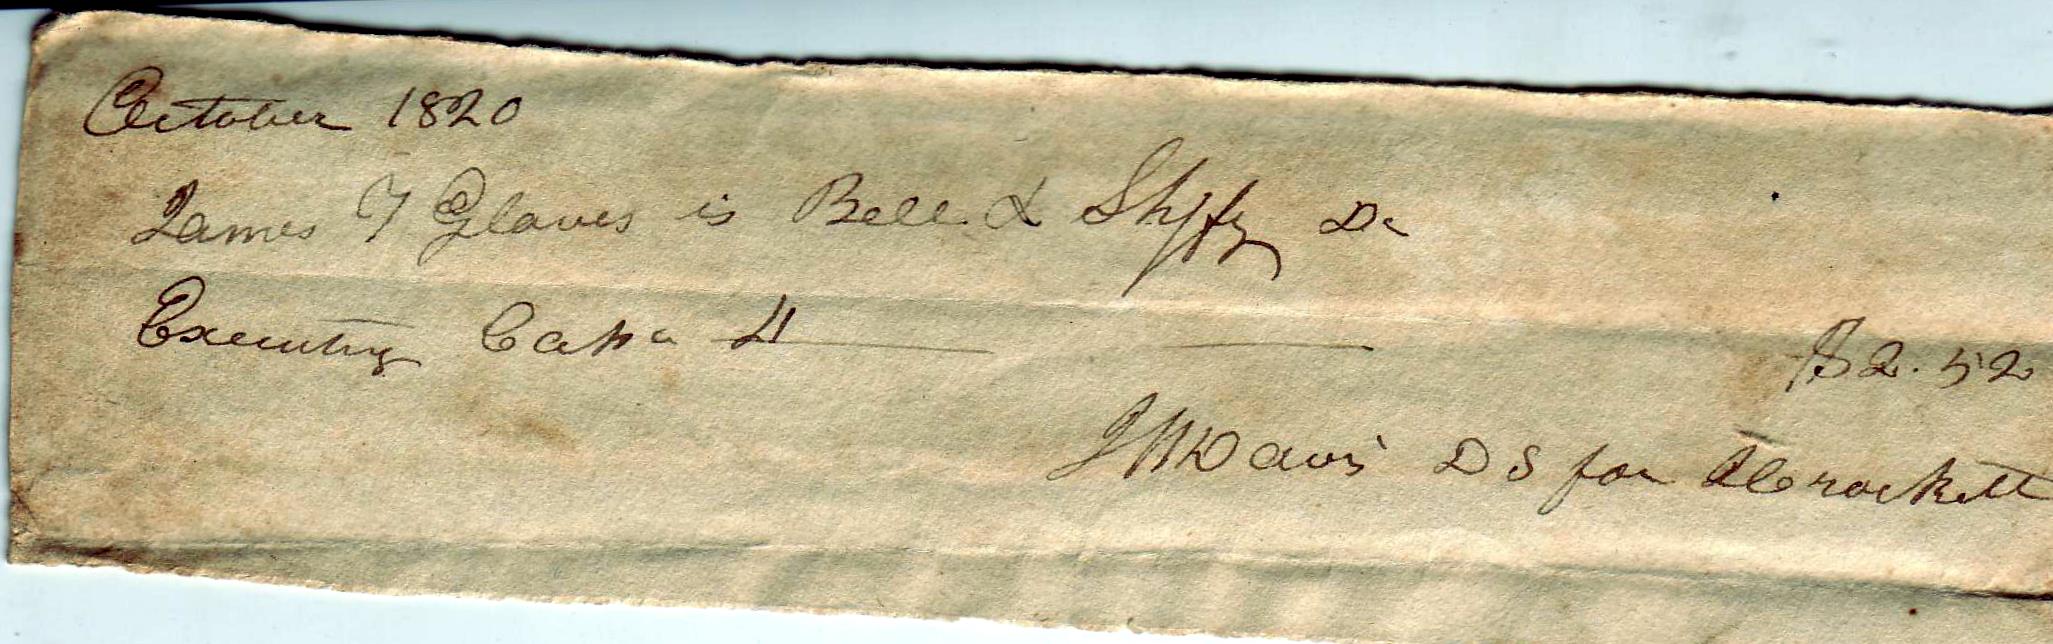 October 1820
James T Glaves is Bell & Shffy Dr
Executing Capa
$2.52
J M Davis D S for Crockett